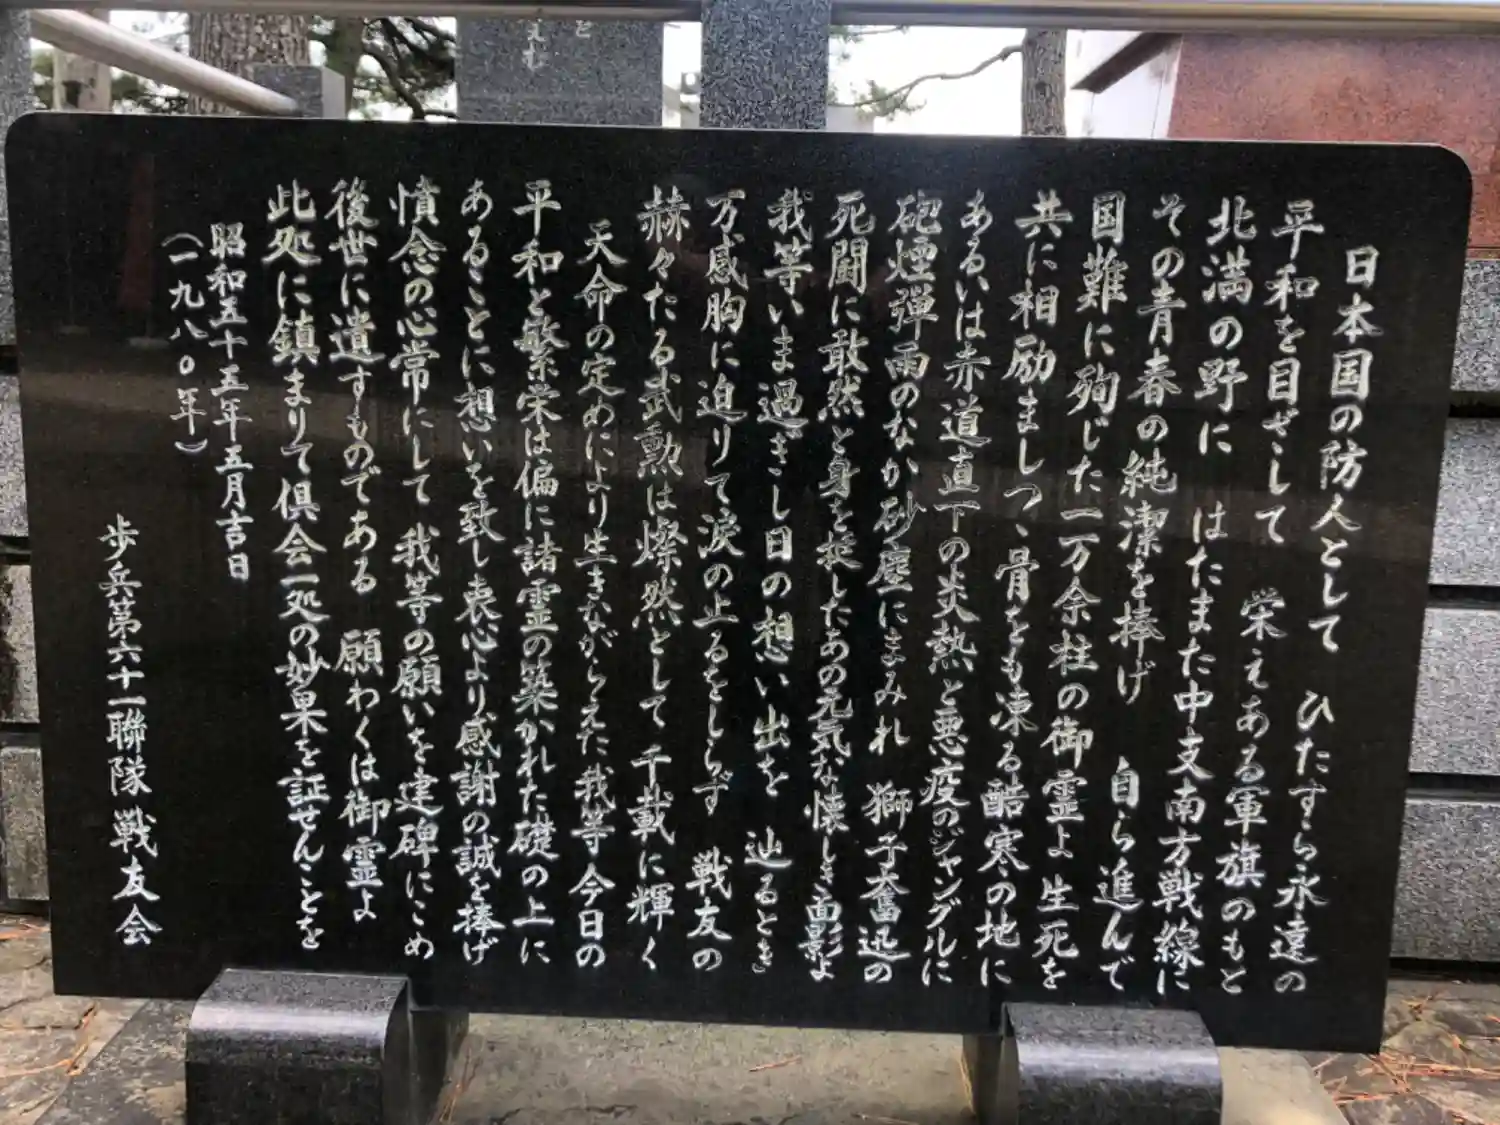 日本国の防人として　ひたすら永遠の
平和を目ざして　栄えある軍旗のもと
北満の野に　はたまた中支南方戦線に
その青春の純潔を捧げ　自ら進んで
国難に殉じた一万余柱の御霊よ生死を
共に相励ましつゝ骨をも凍る酷寒の地に
あるいは赤道直下の炎熱と悪疫のジャングルに
砲煙弾雨のなか砂塵にまみれ　獅子奮迅の
死闘に敢然と身を挺したあの元気な懐しき面影よ
我等いま過ぎし日の想い出を　辿るとき
万感胸に迫りて涙の止るをしらず　戦友の
赫々たる武勲は燦然として千載に輝く
天命の定めにより生きながらえた我等今日の
平和と繁栄は偏に諸霊の築かれた礎の上に
あることに想いを致し衷心より感謝の誠を捧げ
憤念の心常にして　我等の願いを建碑にこめ
後世に遺すものである　願わくは御霊よ
此処に鎮まりて倶会一処の妙果を証せんことを
昭和五十五年五月吉日
（一九八〇年）
歩兵第六十一聯隊戦友会
えむ